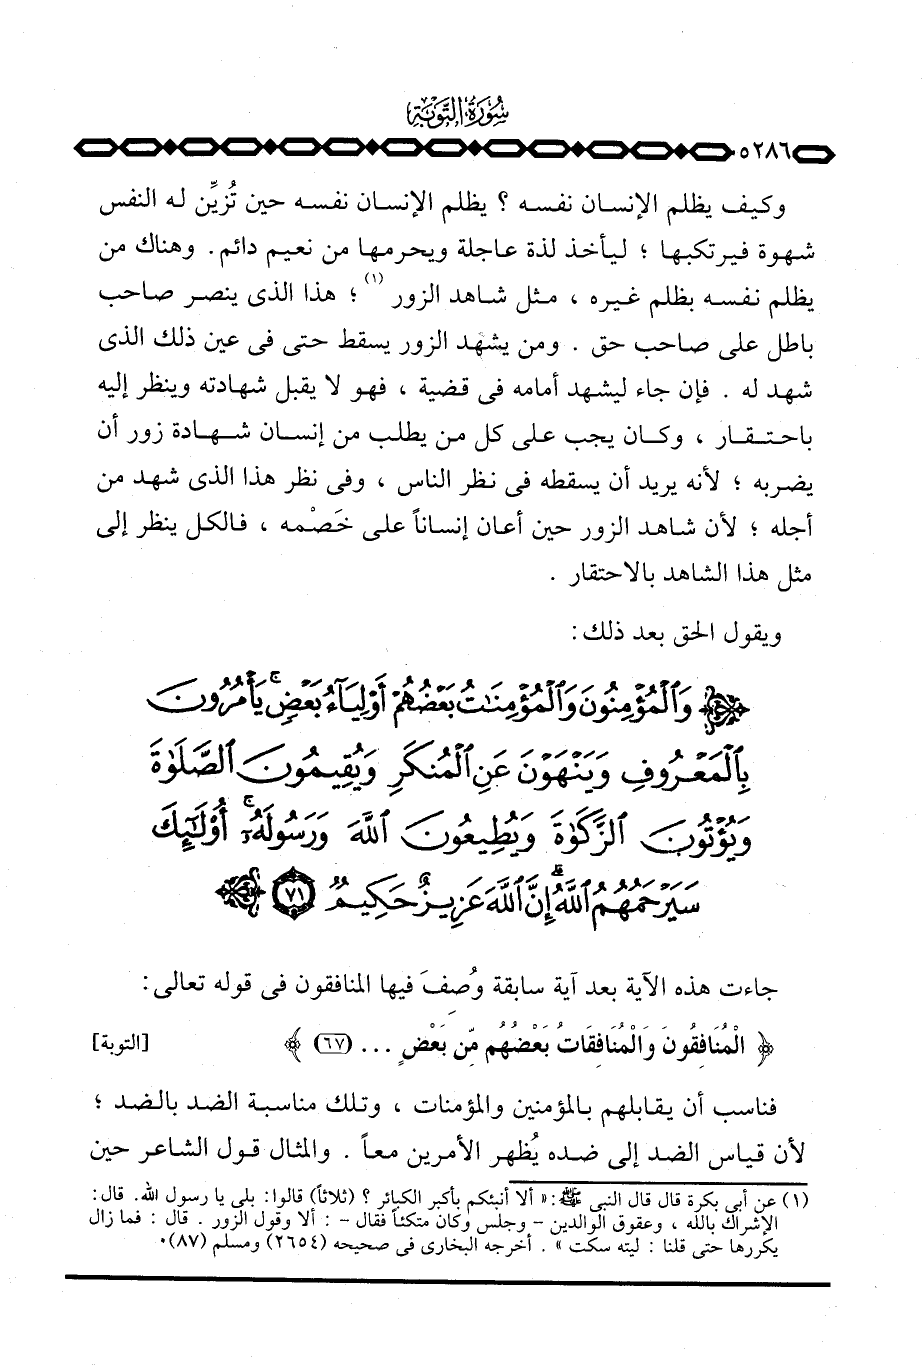 سُورَةُ التَّوۡبَةِ
٥٢٨٦
وكيف يظلم الإنسان نفسه ؟ يظلم الإنسان نفسه حين تُزيِّن له النفس
شهوة فيرتكبها ؛ ليأخذ لذة عاجلة ويحرمها من نعيم دائم . وهناك من
يظلم نفسه بظلم غيره ، مثل شاهد الزور (١) ؛ هذا الذى ينصر صاحب
باطل على صاحب حق . ومن يشهد الزور يسقط حتى فى عين ذلك الذى
شهد له . فإن جاء ليشهد أمامه فى قضية ، فهو لا يقبل شهادته وينظر إليه
باحتقار ، وكان يجب على كل من يطلب من إنسان شهادة زور أن
يضربه ؛ لأنه يريد أن يسقطه فى نظر الناس ، وفى نظر هذا الذى شهد من
أجله ؛ لأن شاهد الزور حين أعان إنساناً على خَصْمه ، فالكل ينظر إلى
مثل هذا الشاهد بالاحتقار .
ويقول الحق بعد ذلك :
﴿ وَٱلۡمُؤۡمِنُونَ وَٱلۡمُؤۡمِنَٰتُ بَعۡضُهُمۡ أَوۡلِيَآءُ بَعۡضٖۚ يَأۡمُرُونَ
بِٱلۡمَعۡرُوفِ وَيَنۡهَوۡنَ عَنِ ٱلۡمُنكَرِ وَيُقِيمُونَ ٱلصَّلَوٰةَ
وَيُؤۡتُونَ ٱلزَّكَوٰةَ وَيُطِيعُونَ ٱللَّهَ وَرَسُولَهُۥٓۚ أُوْلَٰٓئِكَ
سَيَرۡحَمُهُمُ ٱللَّهُۗ إِنَّ ٱللَّهَ عَزِيزٌ حَكِيمٞ ٧١ ﴾
جاءت هذه الآية بعد آية سابقة وُصِفَ فيها المنافقون فى قوله تعالى :
﴿ الْمُنَافِقُونَ وَالْمُنَافِقَاتُ بَعْضُهُم مِّن بَعْضٍ ... (٦٧) ﴾ [التوبة]
فناسب أن يقابلهم بالمؤمنين والمؤمنات ، وتلك مناسبة الضد بالضد ؛
لأن قياس الضد إلى ضده يُظهر الأمرين معاً . والمثال قول الشاعر حين
(١) عن أبى بكرة قال قال النبى ﷺ : « ألا أنبئكم بأكبر الكبائر ؟ (ثلاثاً) قالوا : بلى يا رسول الله . قال :
الإشراك بالله ، وعقوق الوالدين - وجلس وكان متكئاً فقال - : ألا وقول الزور . قال : فما زال
يكررها حتى قلنا : ليته سكت » . أخرجه البخارى فى صحيحه (٢٦٥٤) ومسلم (٨٧) .